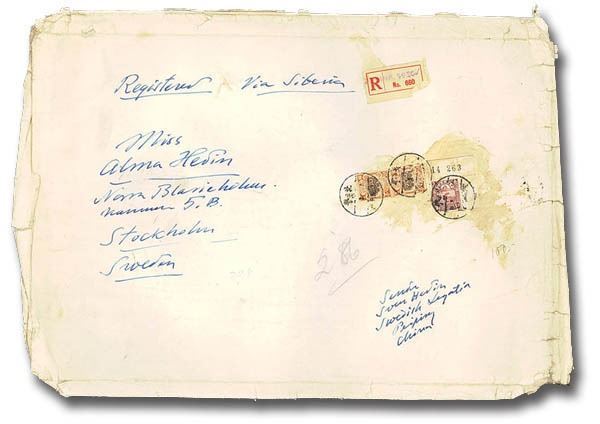 Registered Via Siberia
R
No. 660
Miss
Alma Hedin
Norra Blasieholms
hamnen 5.B.
Stockholm
Sweden
14 263
286
Sender
Sven Hedin
Swedish Legation
Peiping
China